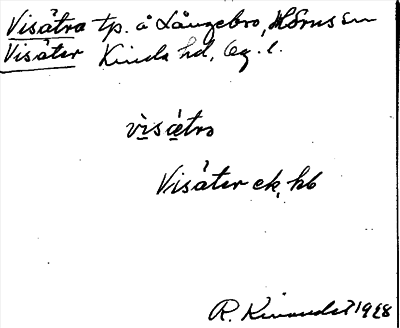 Visätra tp. å Långebro, H Srus sn
Visäter Kinda hd, Ög. l.
visætro
Visäter ek, kb
R. Kinander 1928